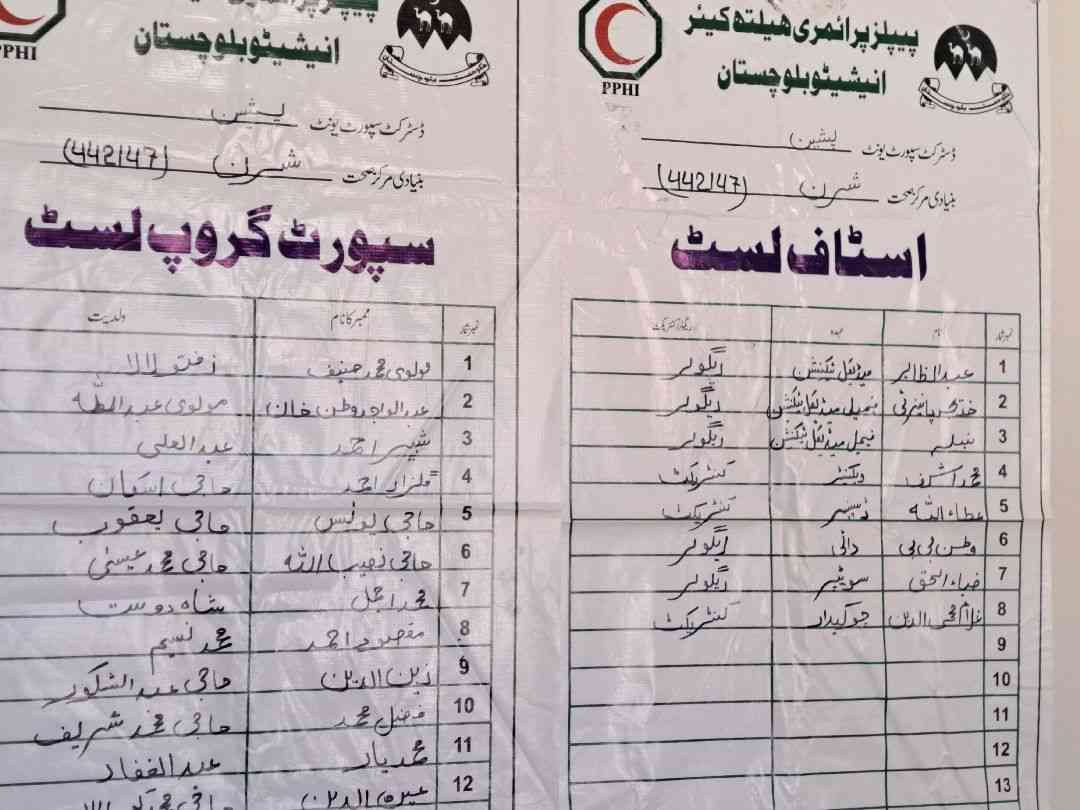 پیپلز پرائمری ہیلتھ کیئر
انیشیٹو بلوچستان
PPHI
ڈسٹرکٹ سپورٹ یونٹ پشین
بنیادی مرکز صحت شرن (442147)
اسٹاف لسٹ
نمبر شمار نام عہدہ ریگولر/کنٹریکٹ
1 عبدالظاہر میڈیکل ٹیکنیشن ریگولر
2 فیمیل میڈیکل ٹیکنیشن ریگولر
3 نبیلہ فیمیل میڈیکل ٹیکنیشن ریگولر
4 محمد اشرف کنٹریکٹ
5 عطاء اللہ کنٹریکٹ
6 وطن بی بی دائی ریگولر
7 ضیاء الحق سویپر ریگولر
8 غلام محی الدین چوکیدار کنٹریکٹ
9
10
11
12
13
انیشیٹو بلوچستان
PPHI
ڈسٹرکٹ سپورٹ یونٹ پشین
بنیادی مرکز صحت شرن (442147)
سپورٹ گروپ لسٹ
نمبر شمار ممبر کا نام ولدیت
1 مولوی محمد حنیف
2 عبدالواحد وطن خان مولوی
3 شبیر احمد عبدالعلی
4 گلزار احمد حاجی
5 حاجی یونس حاجی یعقوب
6 حاجی نصیب اللہ حاجی محمد عیسیٰ
7 محمد اجمل شاہ دوست
8 مقصود احمد محمد نسیم
9 زین الدین حاجی عبدالشکور
10 فضل محمد حاجی محمد شریف
11 محمد یار عبدالغفار
12